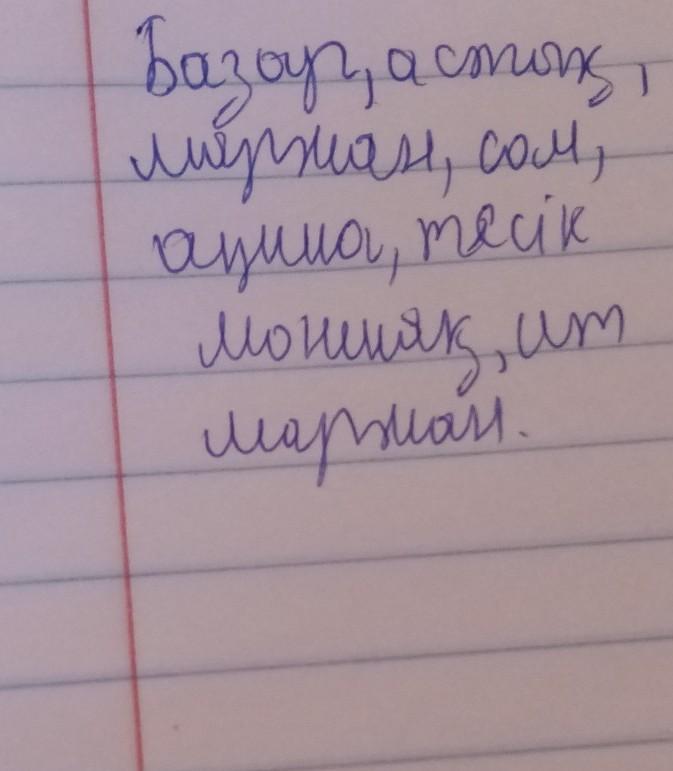 Базар, астық,
маржан, сом,
ақша, тесік
моншақ, ит
маржан.